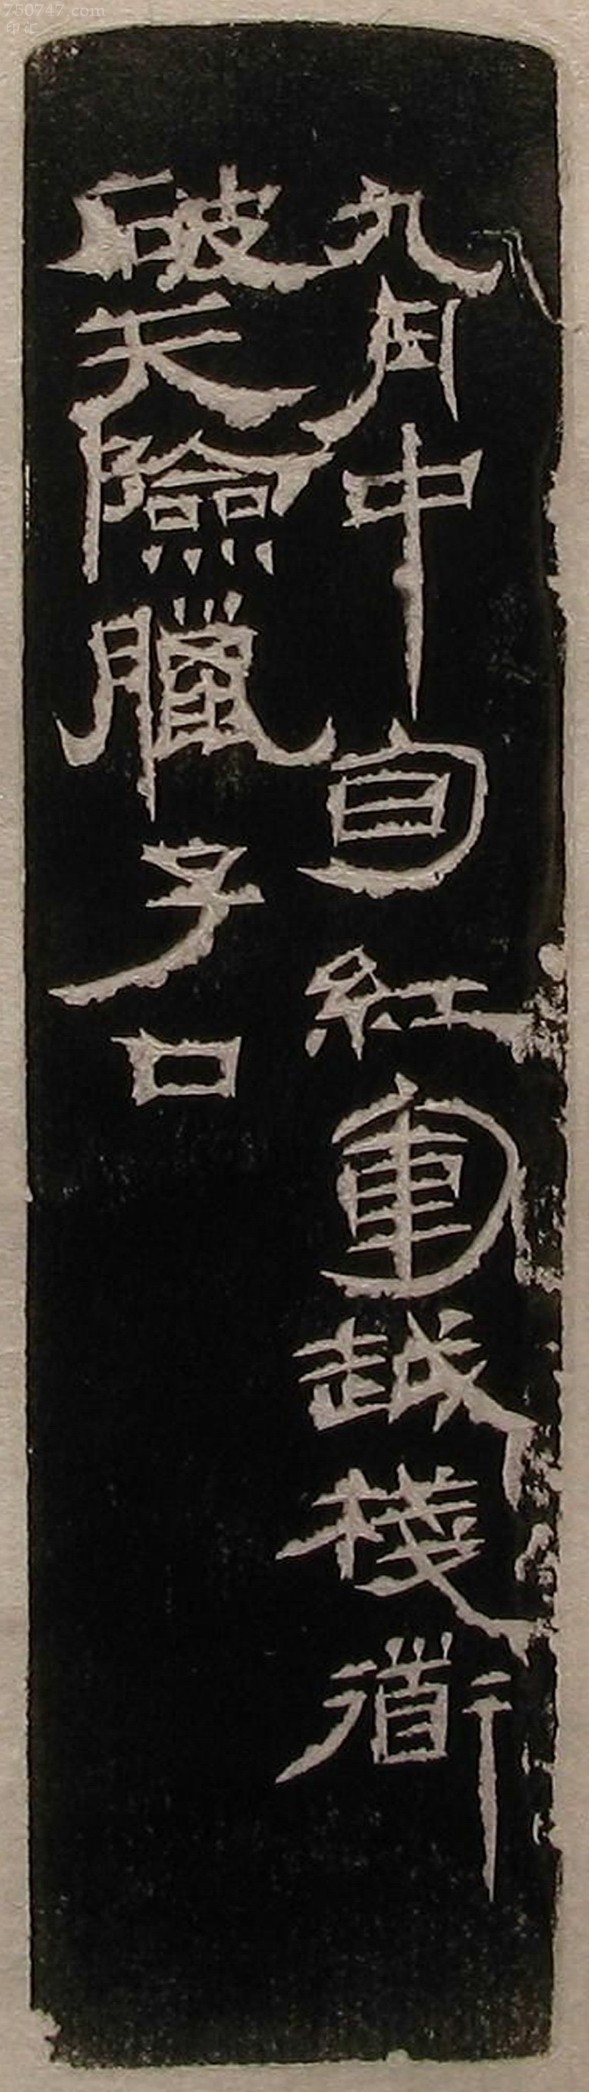 750747.com
九月中旬紅軍越棧道
破天險臘子口